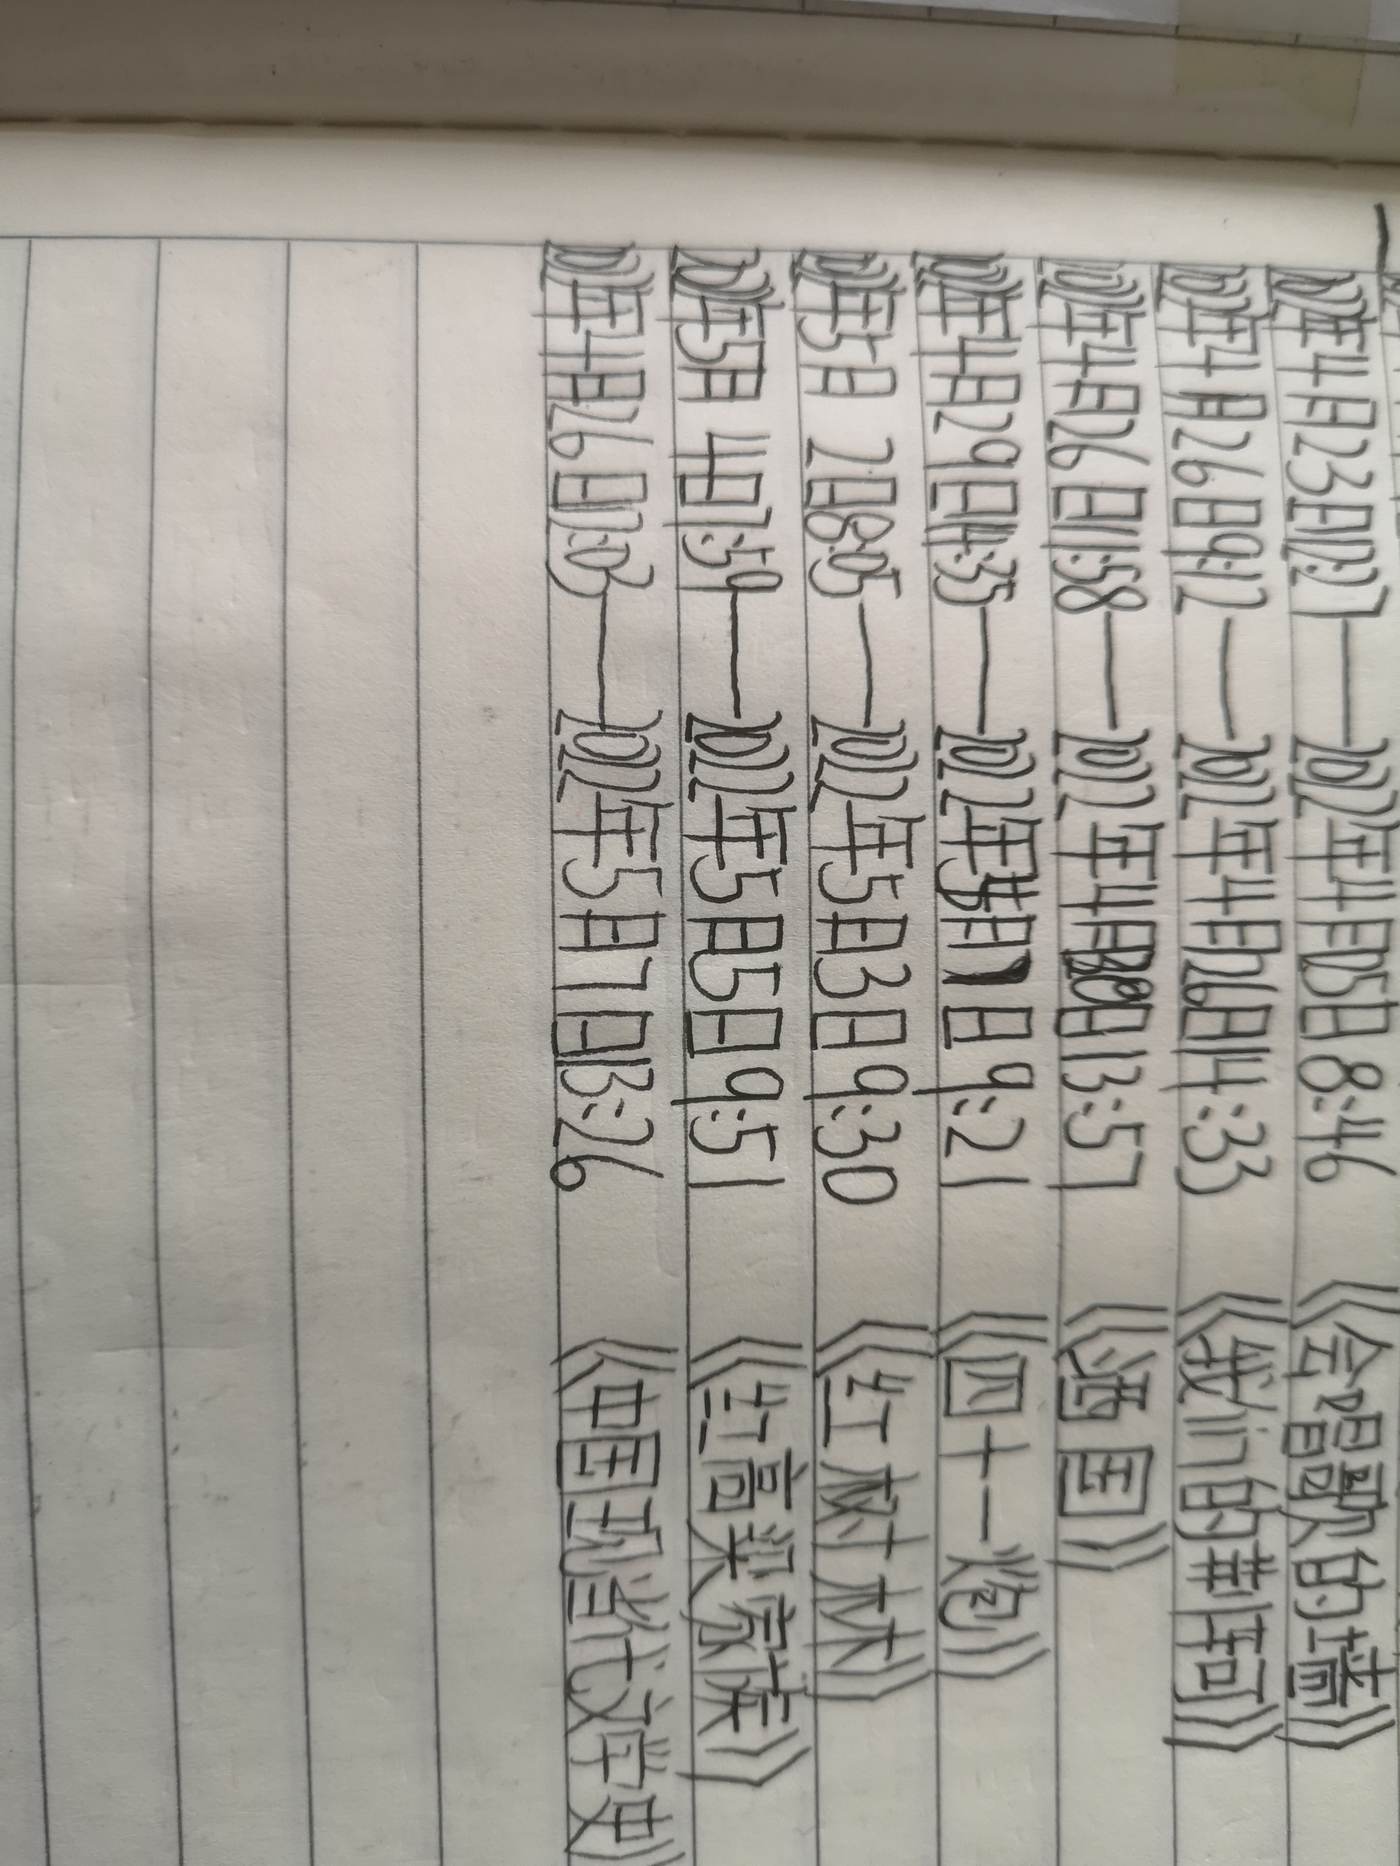 2022年4月23日12:27——2022年4月25日8:46 《会唱歌的墙》
2022年4月26日9:12——2022年4月26日14:33 《我们的荆轲》
2022年4月26日11:58——2022年4月29日13:57 《酒国》
2022年4月29日14:35——2022年5月1日9:21 《四十一炮》
2022年5月2日8:05——2022年5月3日9:30 《红树林》
2022年5月4日7:59——2022年5月5日9:51 《红高粱家族》
2022年4月26日17:03——2022年5月7日13:26 《中国现当代文学史》